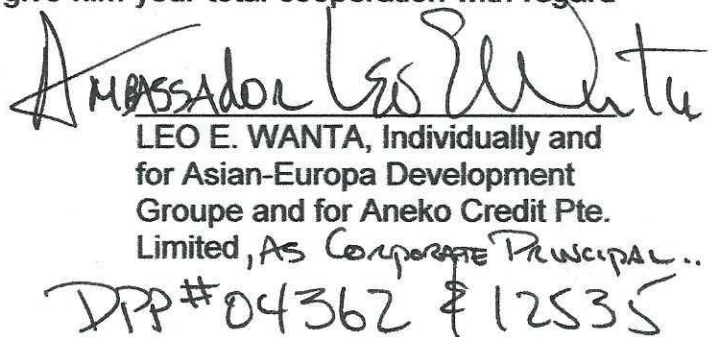 give him your total cooperation with regard
Ambassador Leo E Wanta
LEO E. WANTA, Individually and
for Asian-Europa Development
Groupe and for Aneko Credit Pte.
Limited, As Corporate Principal..
DPP#04362 & 12535